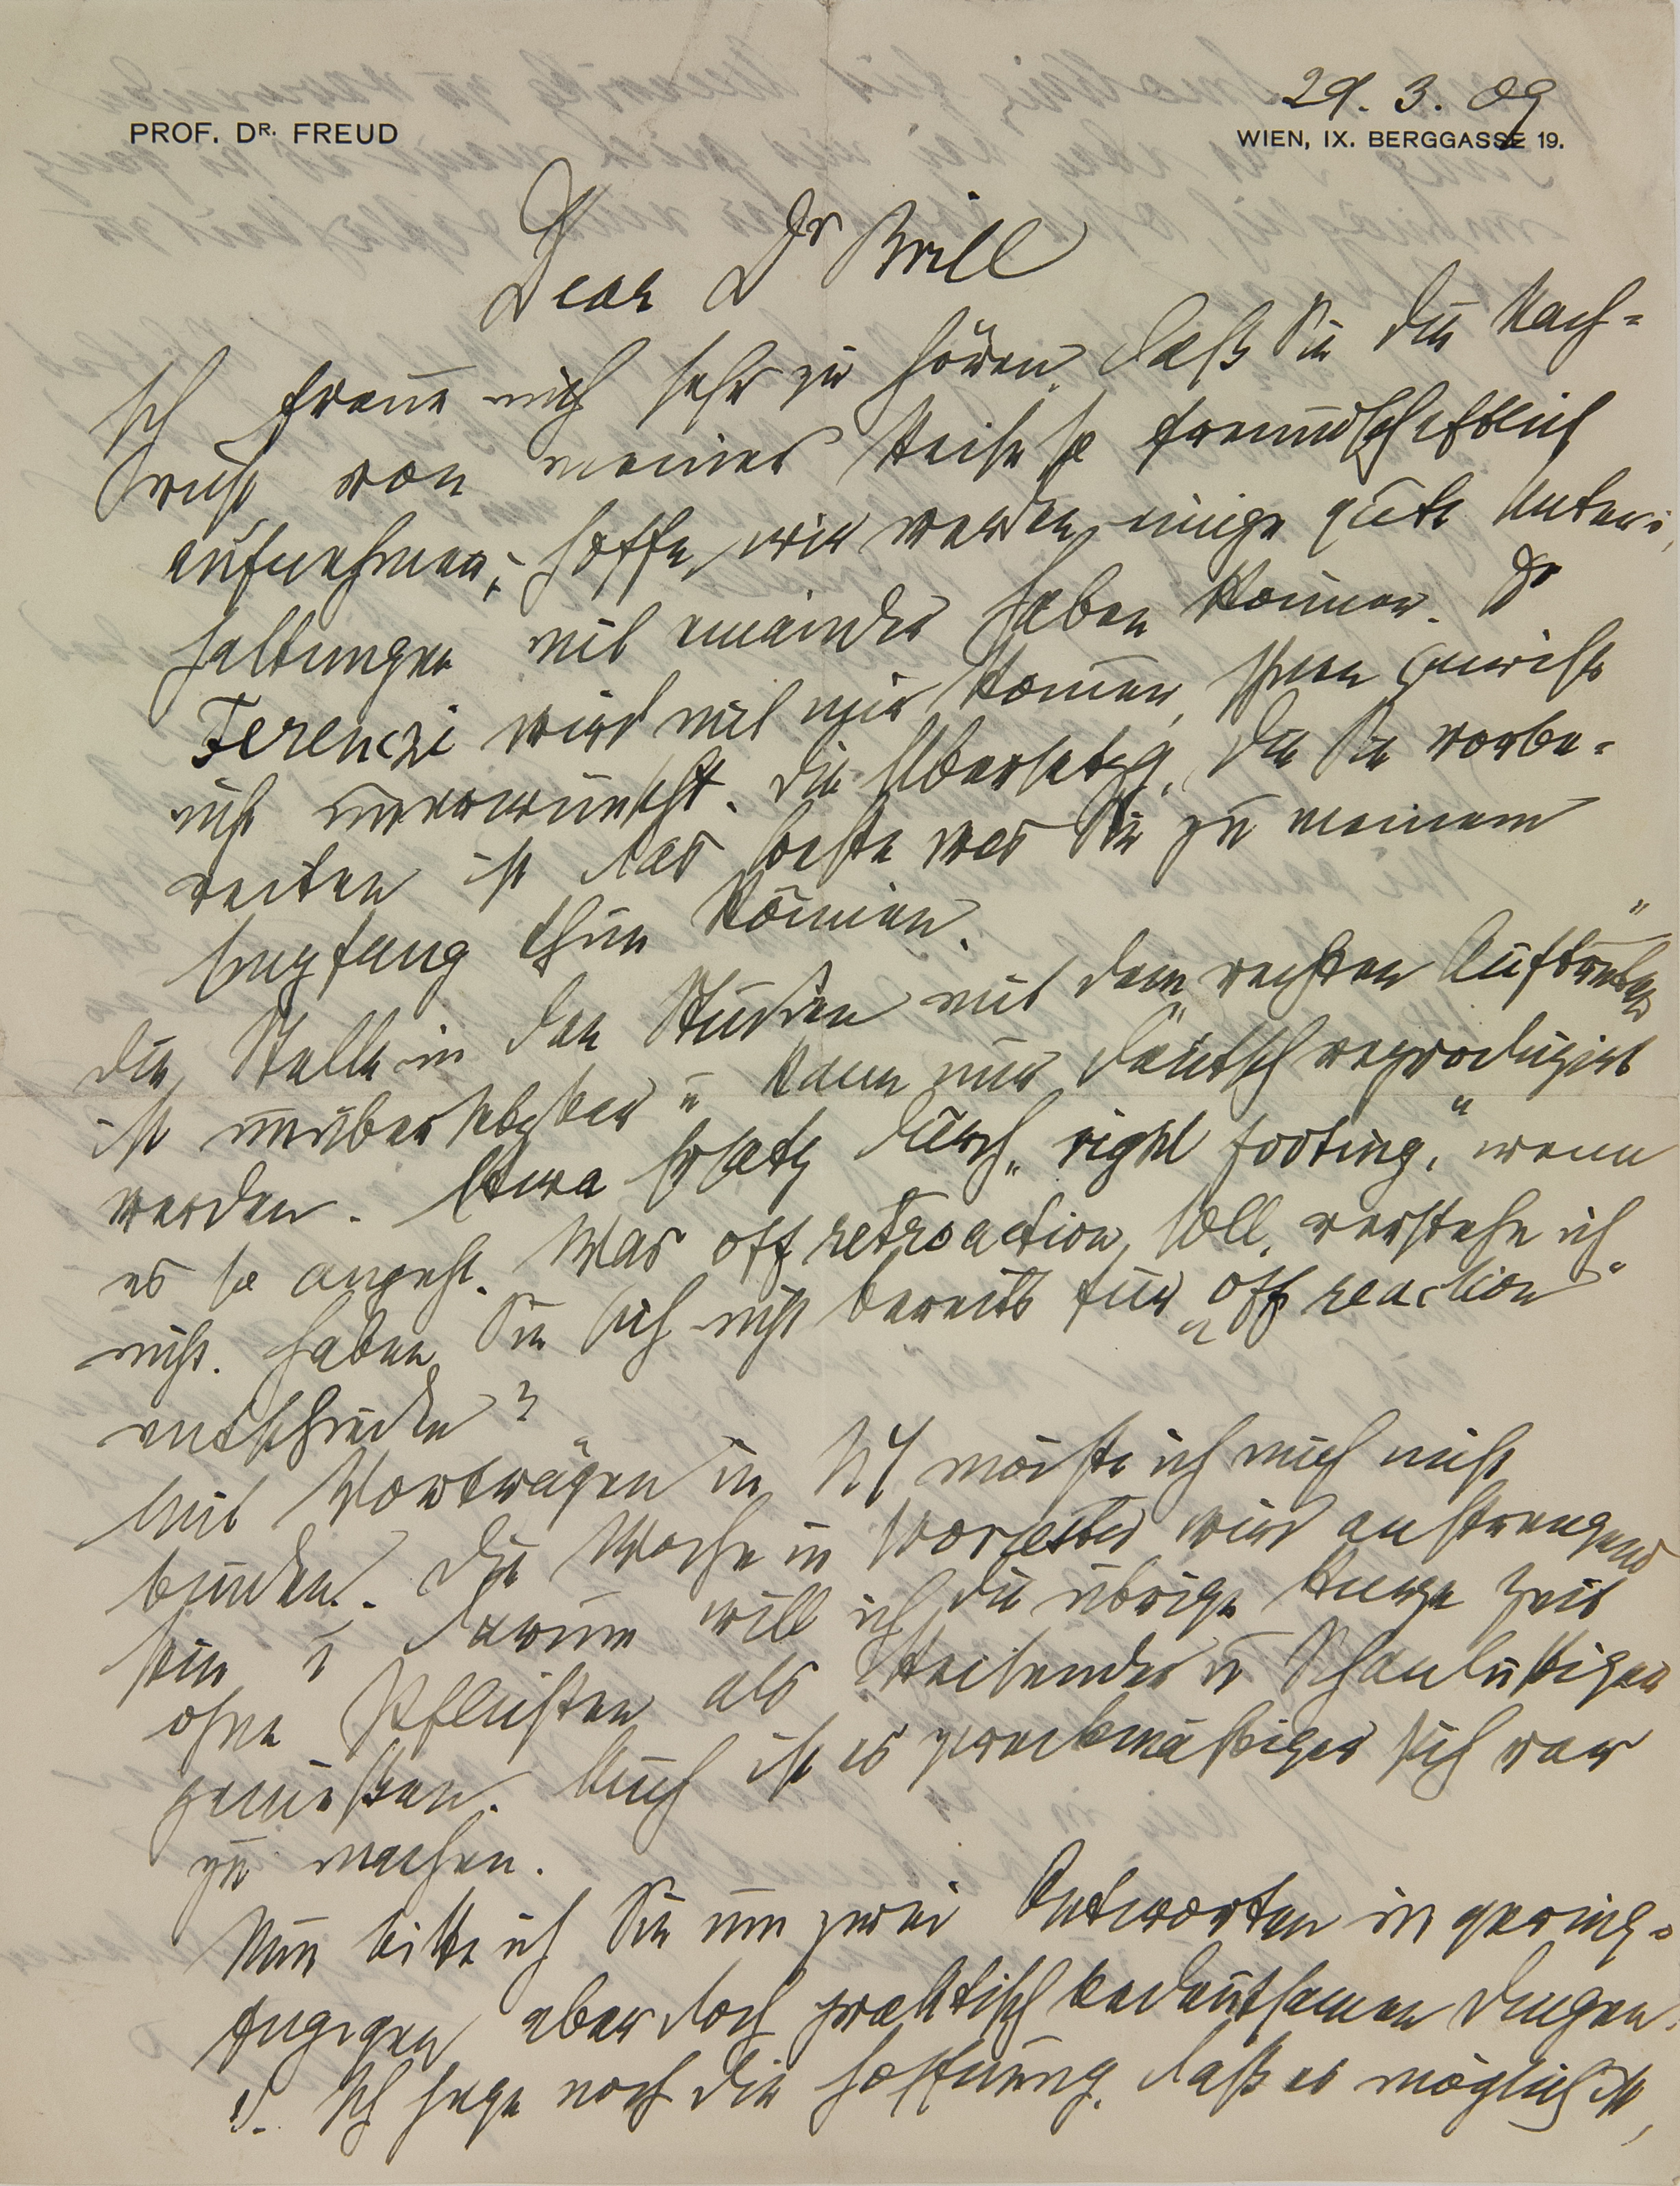 29. 3. 09
PROF. DR. FREUD
WIEN, IX. BERGGASSE 19.
Dear Dr Brill
Ich freue mich sehr zu hören, daß Sie die Nach-
richt von meiner Reise so freundschaftlich
aufnehmen; hoffe, wir werden einige gute Unter-
haltungen mit einander haben können. Dr
Ferenczi wird mit mir kommen, Ihnen gewiß
nicht unerwünscht. Die Übersetzg, die Sie vorbe-
reiten ist das beste was Sie zu meinem
Empfang thun können.
Die Stelle in den Studien mit dem „rechten Auftreten“
ist unübersetzbar u kann nur deutsch reproduzirt
werden. Etwa Ersatz durch „right footing“, wenn
es so angeht. Was off retroaction soll, verstehe ich
nicht. Haben Sie sich nicht bereits für „off reaction“
entschieden?
Mit Vorträgen in NY möchte ich mich nicht
binden. Die Woche in Worcester wird anstrengend
sein u darum will ich die übrige kurze Zeit
ohne Pflichten als Reisender u Schaulustiger
genießen. Auch ist es zweckmäßiger sich rar
zu machen.
Nun bitte ich Sie um zwei Antworten in gering-
fügigen aber doch praktisch bedeutsamen Dingen.
Ich hege noch die Hoffnung, daß es möglich ist,